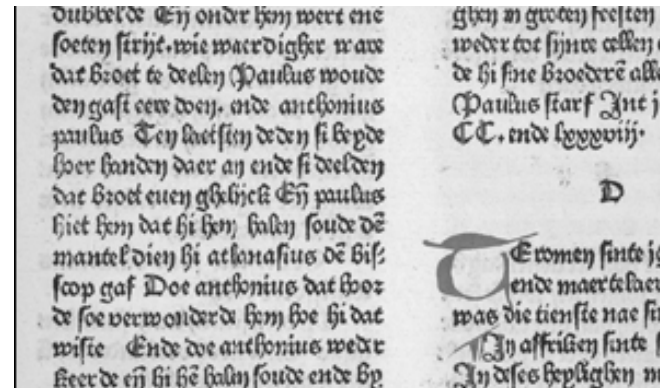 dubbelde Eñ onder hem wert ene
soeten strijt. wie waerdigher ware
dat broet te deelen Paulus woude
den gast eere doen. ende anthonius
paulus Ten laetsten deden si beyde
hoer handen daer an ende si deelden
dat broet euen ghelijck Eñ paulus
hiet hem dat hi hem halen soude dē
mantel dien hi athanasius dē bis⸗
scop gaf Doe anthonius dat hoor
de soe verwonderde hem hoe hi dat
wiste Ende doe anthonius weder
keerde eñ hi hē halen soude ende by
ghen in groten feesten
weder tot sijnre cellen
de hi sine broederē
Paulus starf Int
CC. ende lxxxviij.
D
TE romen sinte
ende maertelaer
was die tienste nae
In affriken sinte
In deses heylighen